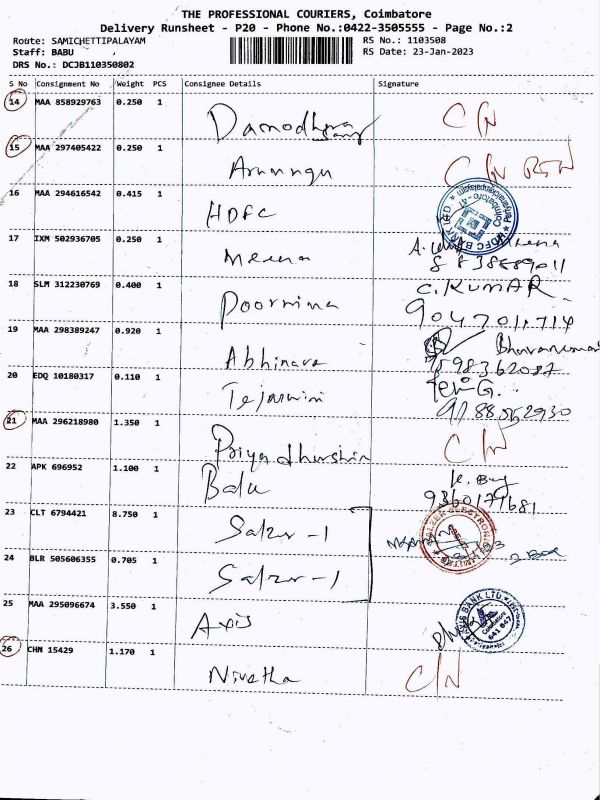 THE PROFESSIONAL COURIERS, Coimbatore
Delivery Runsheet - P20 - Phone No.:0422-3505555 - Page No.:2
Route: SAMICHETTIPALAYAM RS No.: 1103508
Staff: BABU RS Date: 23-Jan-2023
DRS No.: DCJB110350802
S No Consignment No Weight PCS Consignee Details Signature
14 MAA 858929763 0.250 1 C/N
15 MAA 297405422 0.250 1 C/N
16 MAA 294616542 0.415 1 HDFC HDFC BANK LTD
17 IXM 502936705 0.250 1 Meena
18 SLM 312230769 0.400 1 Poornima C.KUMAR
9047011714
19 MAA 298389247 0.920 1 Abhinava
20 EDQ 10180317 0.110 1
21 MAA 296218980 1.350 1 Priyadharshin C/N
22 APK 696952 1.100 1 Balu
23 CLT 6794421 8.750 1 Salzer-1
24 BLR 505606355 0.705 1 Salzer-1
25 MAA 295096674 3.550 1 Axis AXIS BANK LTD
26 CHN 15429 1.170 1 Nivetha C/N